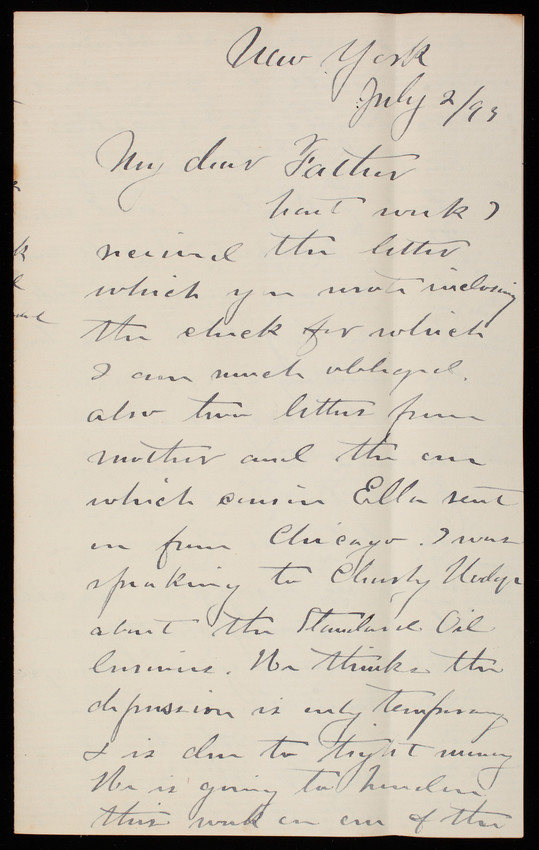 New York
July 2/93
My dear Father
Last week I
received the letter
which you wrote inclosing
the check for which
I am much obliged.
also two letters from
mother and the one
which cousin Ella sent
on from Chicago. I was
speaking to Charly Hodge
about the Standard Oil
business. He thinks the
depression is only temporary
& is due to tight money
He is going to London
this week on one of the